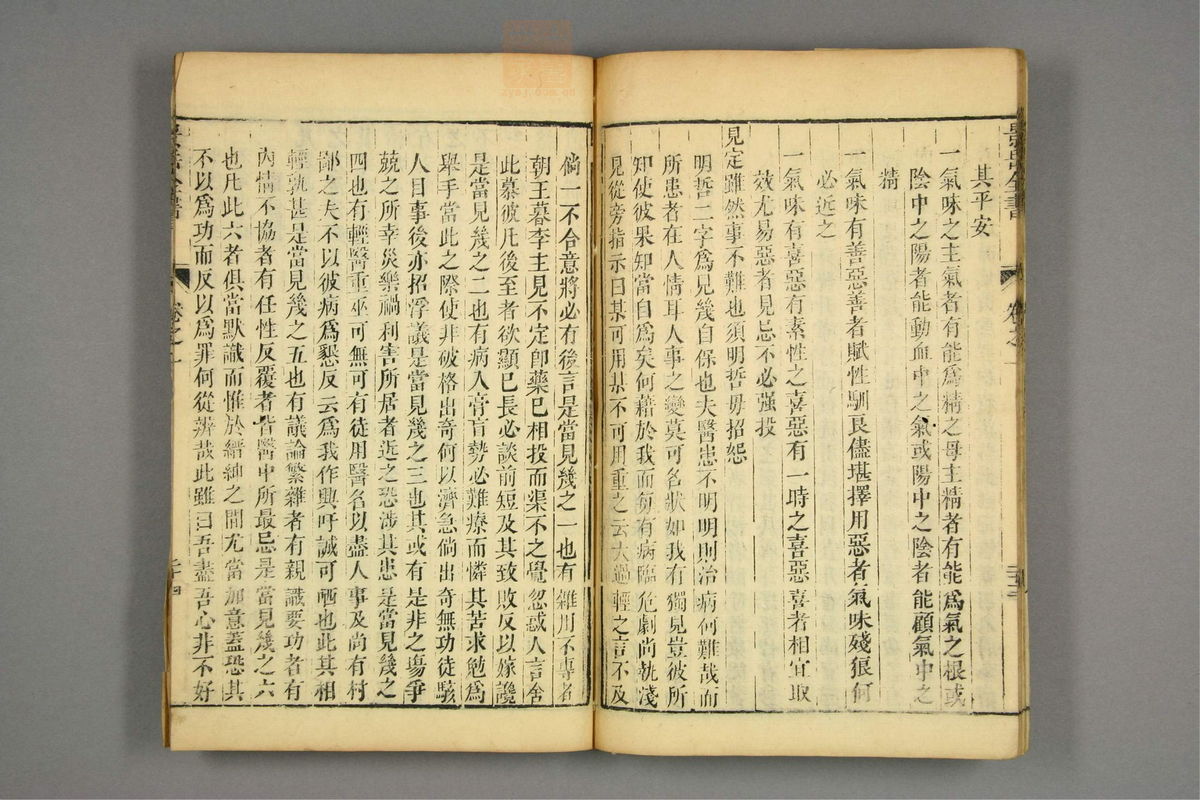 其平安
一氣味之主氣者有能爲精之母主精者有能爲氣之根或
陰中之陽者能動血中之氣或陽中之陰者能顧氣中之
精
一氣味有善惡善者賦性馴良儘堪擇用惡者氣味殘狠何
必近之
一氣味有喜惡有素性之喜惡有一時之喜惡喜者相宜取
效尤易惡者見忌不必强投
見定雖然事不難也須明哲毋招怨
明哲二字爲見幾自保也夫醫患不明明則治病何難哉而
所患者在人情耳人事之變莫可名狀如我有獨見豈彼所
知使彼果知當自爲矣何藉於我而每有病臨危劇尚執淺
見從旁指示曰某可用某不可用重之云太過輕之言不及
倘一不合意將必有後言是當見幾之一也有雜用不專者
朝王暮李主見不定卽藥已相投而渠不之覺忽惑人言舍
此慕彼凡後至者欲顯已長必談前短及其致敗反以嫁讒
是當見幾之二也有病入膏肓勢必難療而憐其苦求勉爲
舉手當此之際使非破格出奇何以濟急倘出奇無功徒駭
人目事後亦招浮議是當見幾之三也其或有是非之塲爭
競之所幸災樂禍利害所居者近之恐涉其患是當見幾之
四也有輕醫重巫可無可有徒用醫名以盡人事及尚有村
鄙之夫不以彼病爲懇反云爲我作興吁誠可哂也此其相
輕孰甚是當見幾之五也有議論繁雜者有親識要功者有
內情不協者有任性反覆者皆醫中所最忌是當見幾之六
也凡此六者俱當默識而惟於縉紳之間尤當加意蓋恐其
不以爲功而反以爲罪何從辨哉此雖曰吾盡吾心非不好
景岳全書
卷之一
二十四